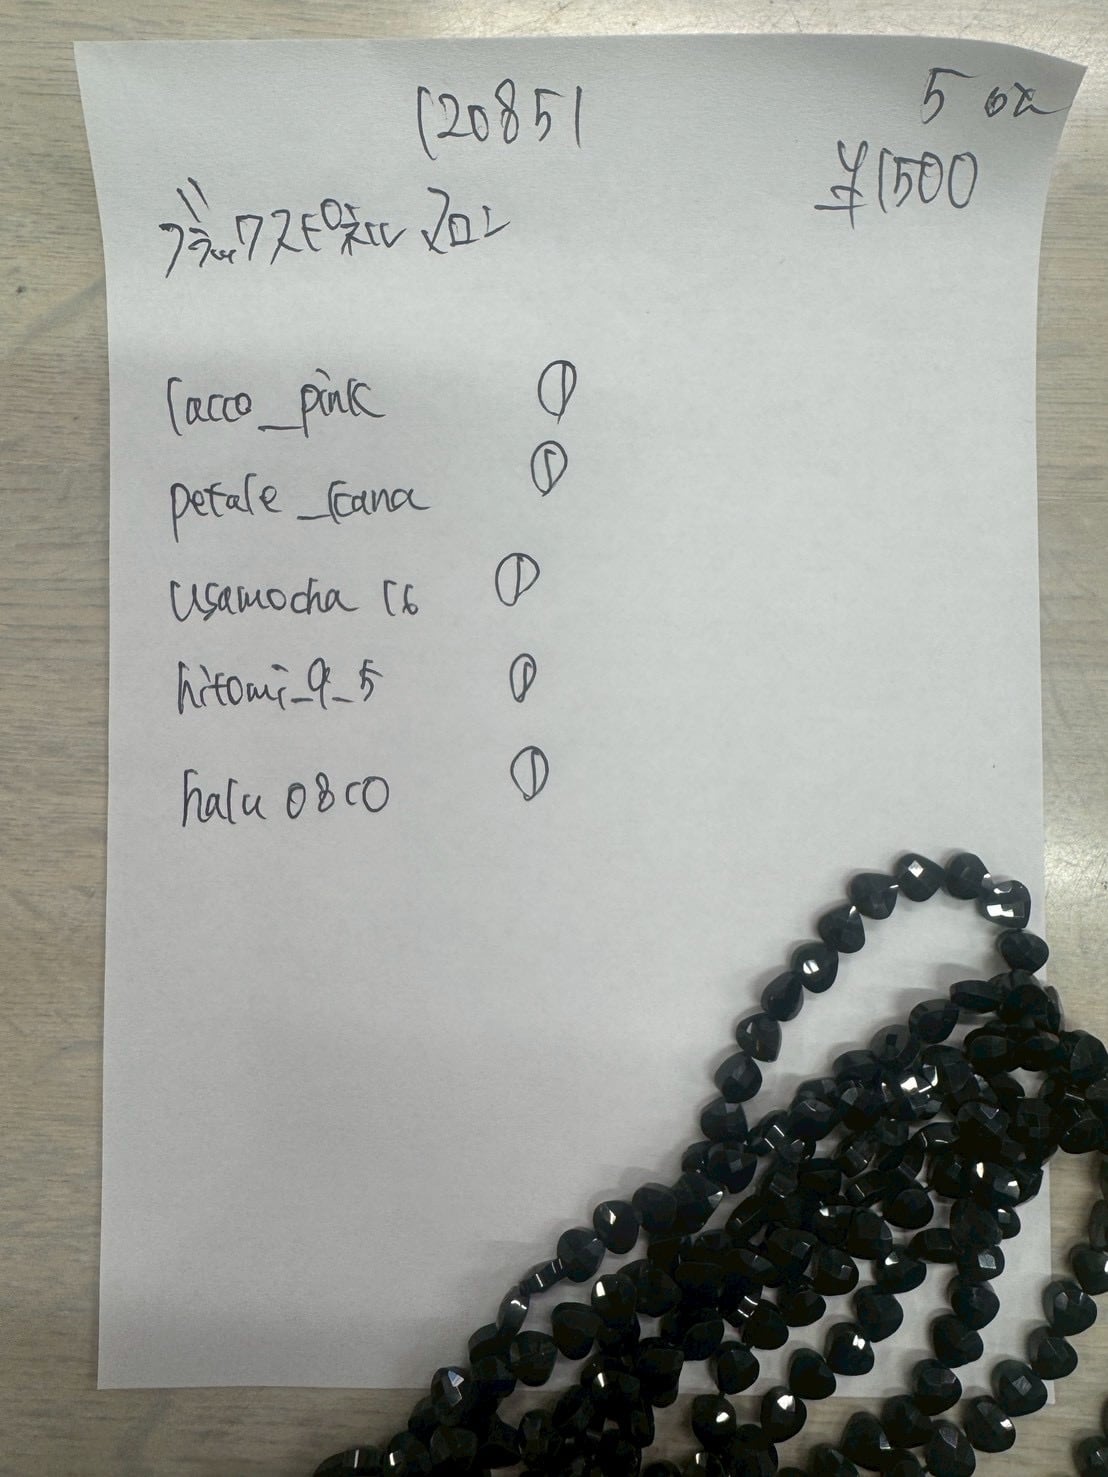 120851
5 oz
¥1500
ブラックスピネル マロン
racco_pink ①
petale_kana ①
usamocha 16 ①
hitomi_9_5 ①
halu 0810 ①